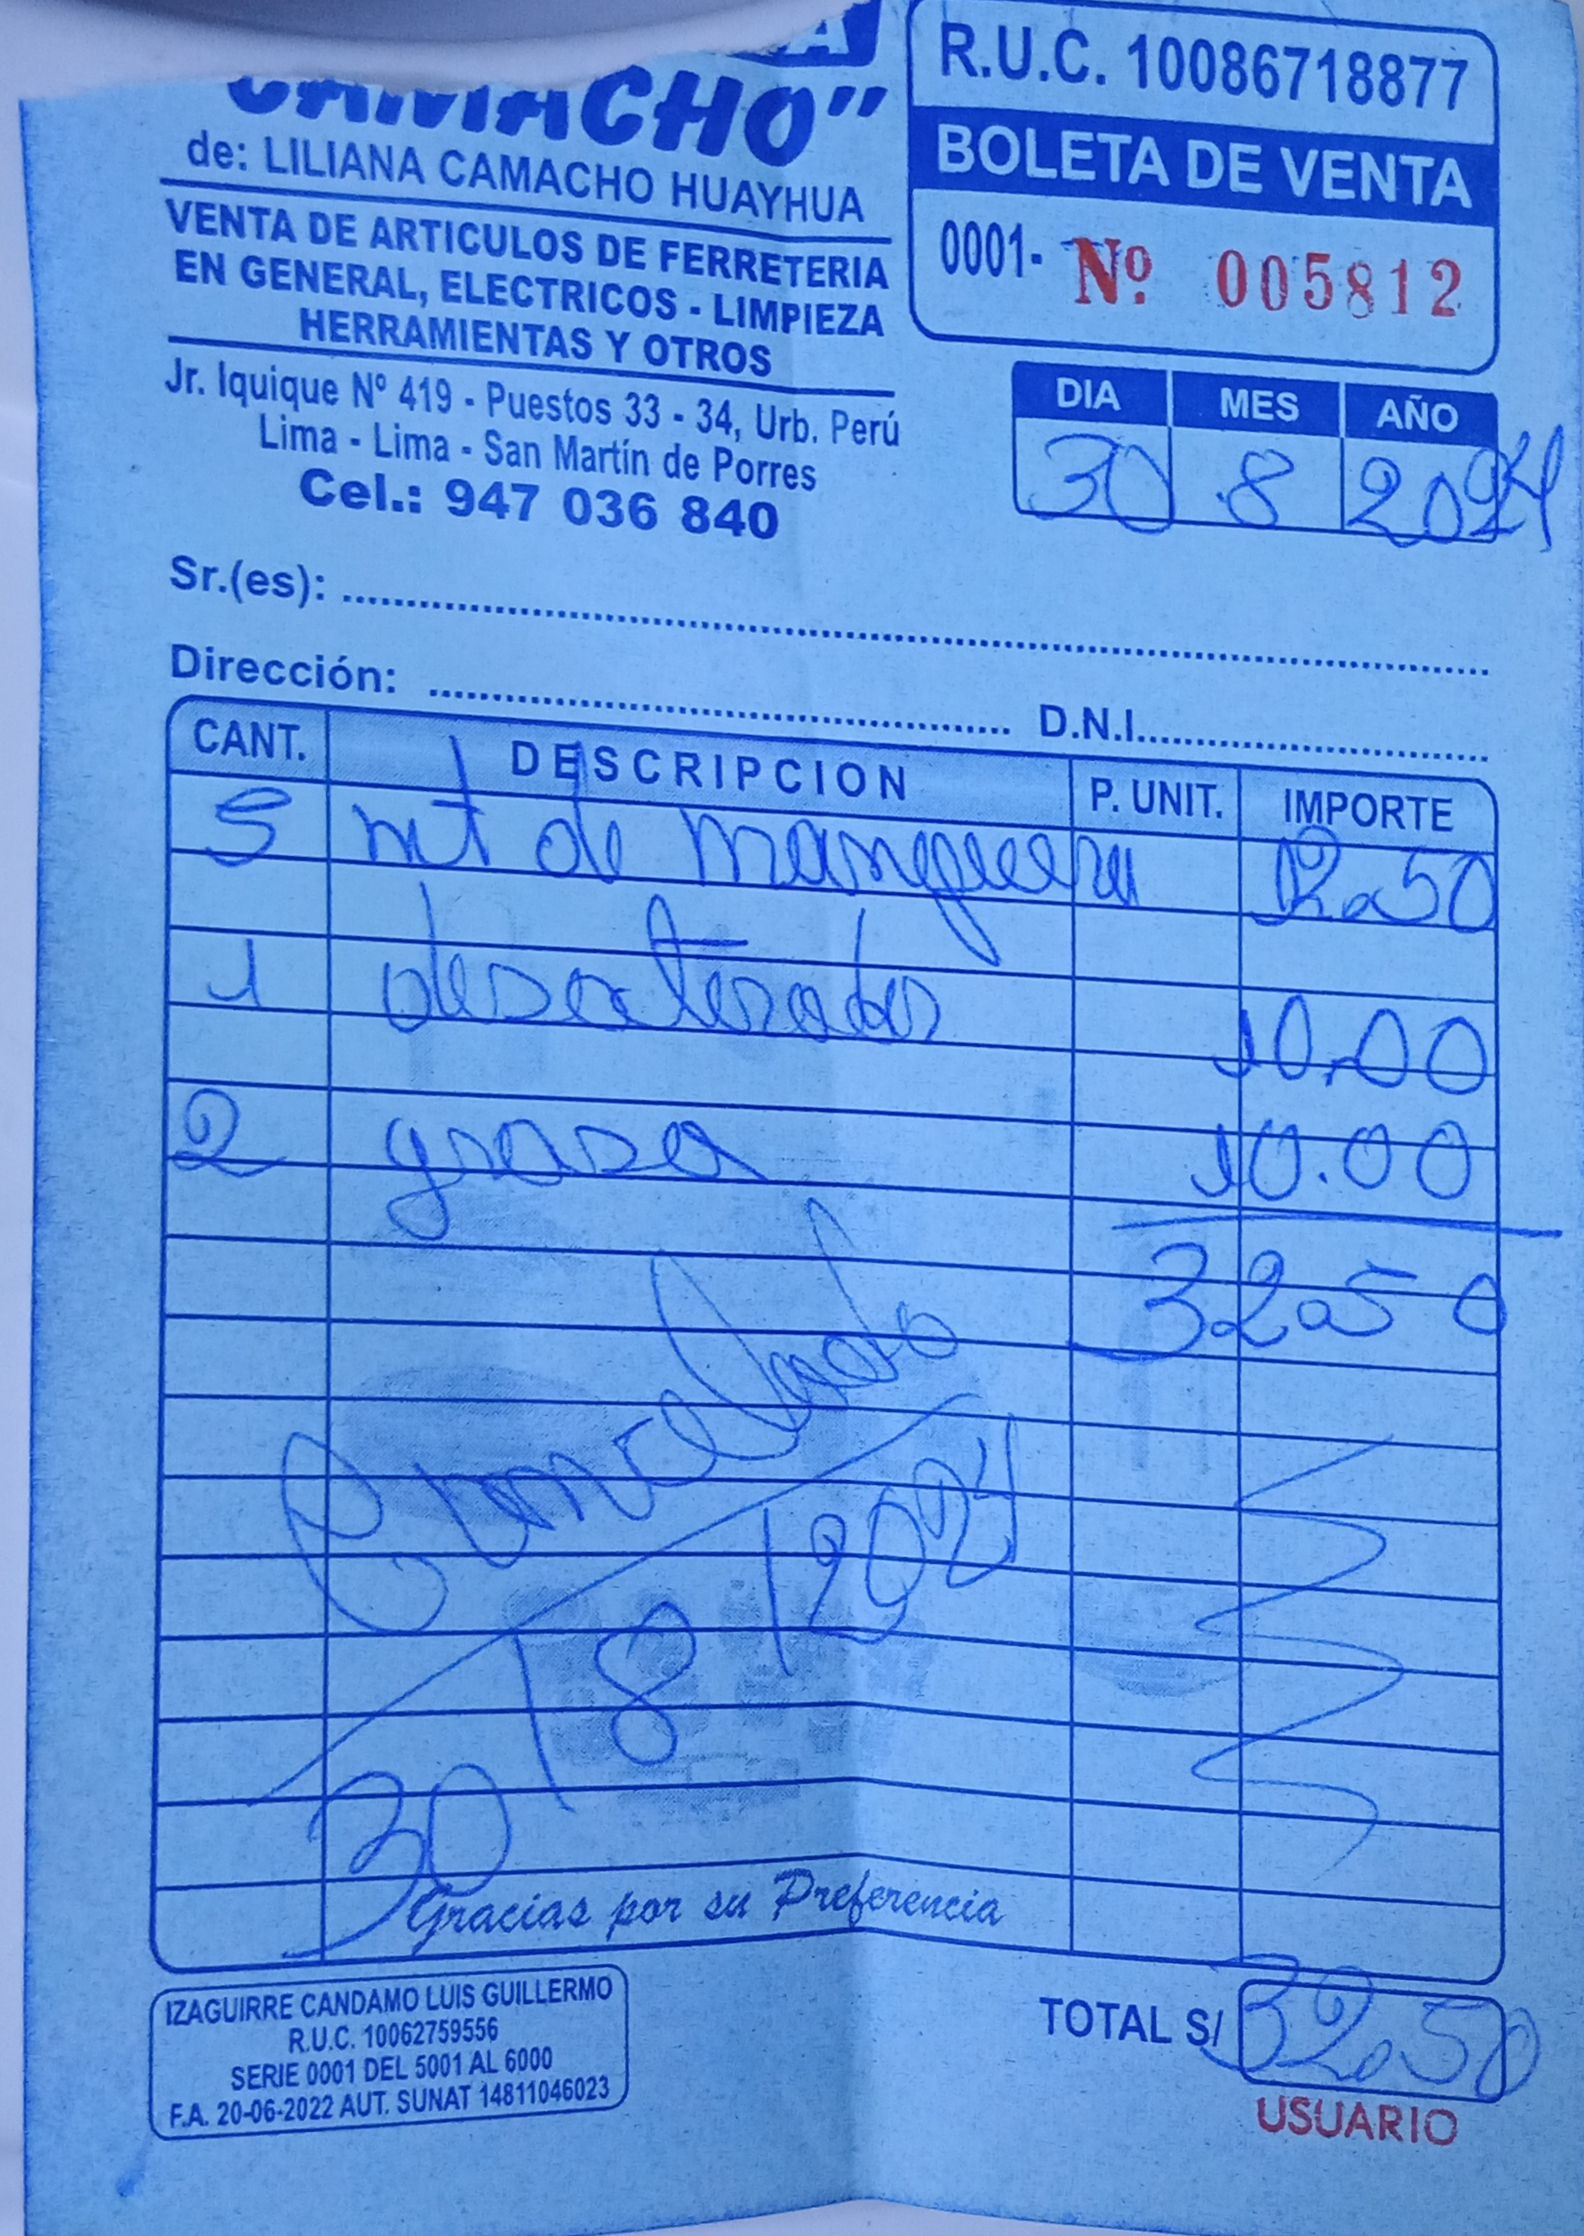 CAMACHO"
de: LILIANA CAMACHO HUAYHUA
VENTA DE ARTICULOS DE FERRETERIA
EN GENERAL, ELECTRICOS - LIMPIEZA
HERRAMIENTAS Y OTROS
Jr. Iquique Nº 419 - Puestos 33 - 34, Urb. Perú
Lima - Lima - San Martín de Porres
Cel.: 947 036 840
R.U.C. 10086718877
BOLETA DE VENTA
0001- Nº 005812
DIA MES AÑO
30 8 2024
Sr.(es):
Dirección: D.N.I.
CANT. DESCRIPCION P. UNIT. IMPORTE
5 mt de manguera 12.50
1 10.00
2 grasa 10.00
32.50
Cancelado
30/8/2024
Gracias por su Preferencia
IZAGUIRRE CANDAMO LUIS GUILLERMO
R.U.C. 10062759556
SERIE 0001 DEL 5001 AL 6000
F.A. 20-06-2022 AUT. SUNAT 14811046023
TOTAL S/ 32.50
USUARIO